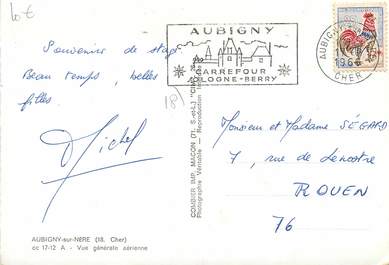 10 €
AUBIGNY
CARREFOUR
SOLOGNE-BERRY
AUBIGNY
196
CHER
Souvenir de stage
Beau temps, belles
filles.
Michel
(18)
COMBIER IMP. MACON (71. S.-et-L.) "CIM"
Photographie Véritable — Reproduction
Monsieur et Madame SÉGARD
7, rue de Lenostre
ROUEN
76
AUBIGNY-sur-NÈRE (18. Cher)
cc 17-12 A. - Vue générale aérienne